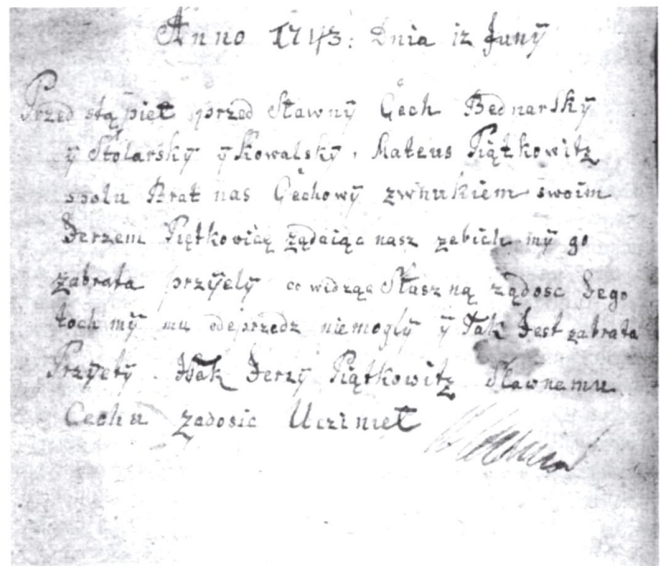 Anno 1743: Dnia 12 Juny
Przed stąpiet przed Sławny Cech Bednarsky
y Stolarsky y Kowalsky, Mateus Piątkowitz
spolu Brat nas Cechowy zwnukiem swoim
Jerzem Piętkowicą ządaiąc nasz zebich my go
zabrata przyely co widząc Słusz ną ządosc Jego
toch my mu odeprzedz niemogly y tak Jest zabrata
Przyety. Wsak Jerzy Piątkowitz Sławnemu
Cechu zadosic Ucziniet